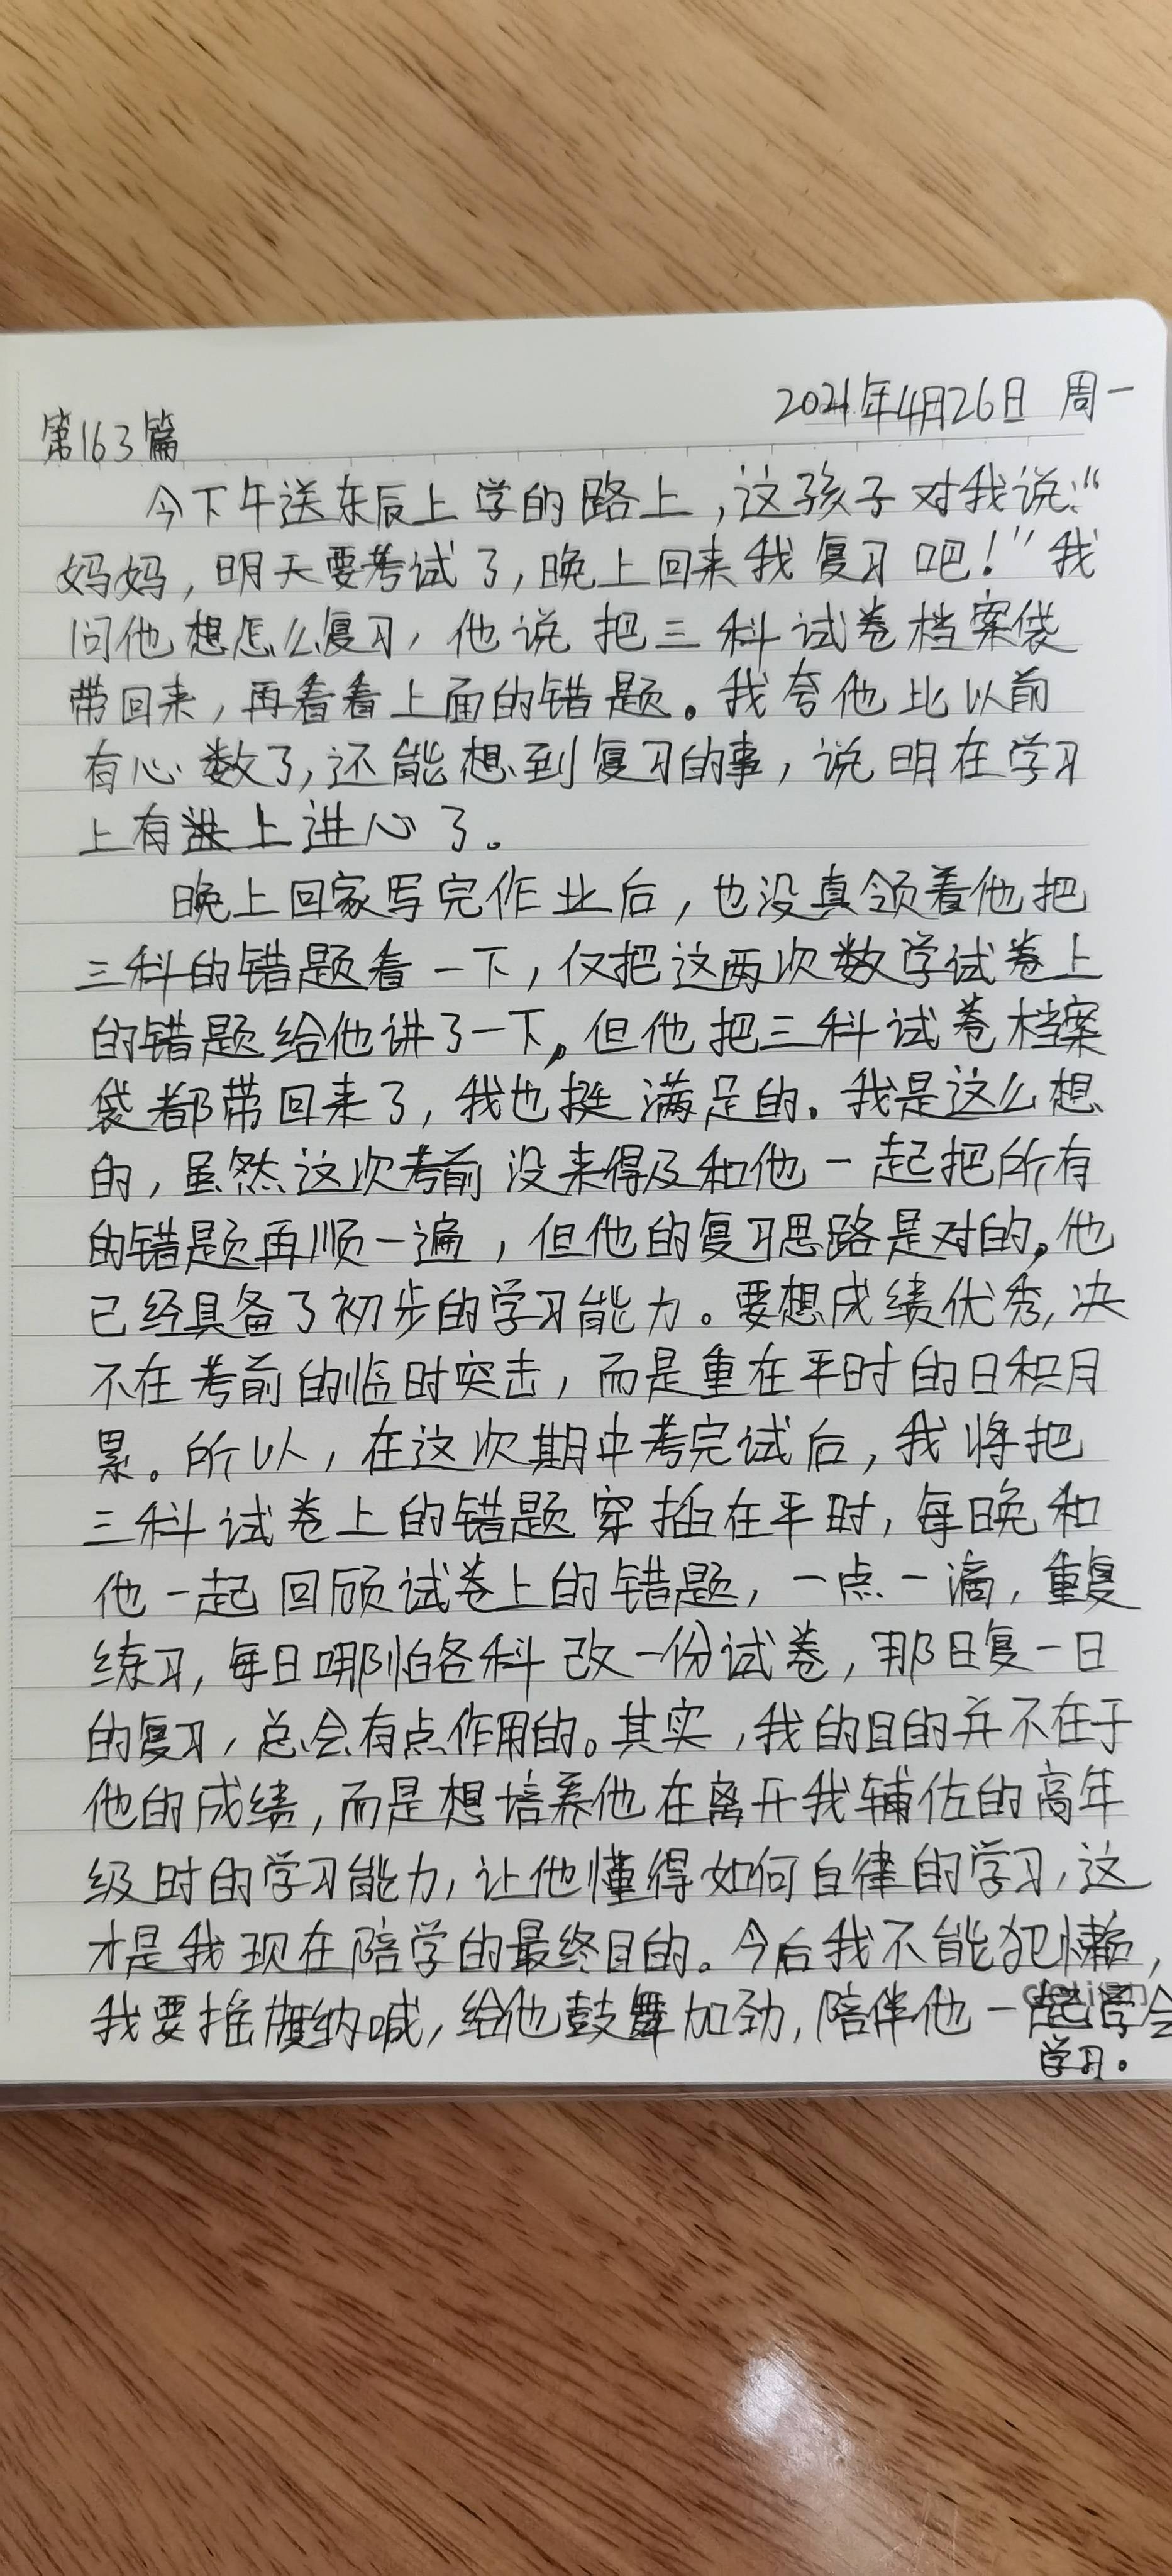 2021年4月26日 周一
第163篇
今下午送东辰上学的路上，这孩子对我说：“
妈妈，明天要考试了，晚上回来我复习吧！”我
问他想怎么复习，他说把三科试卷档案袋
带回来，再看看上面的错题。我夸他比以前
有心数了，还能想到复习的事，说明在学习
上有上进心了。
晚上回家写完作业后，也没真领着他把
三科的错题看一下，仅把这两次数学试卷上
的错题给他讲了一下，但他把三科试卷档案
袋都带回来了，我也挺满足的。我是这么想
的，虽然这次考前没来得及和他一起把所有
的错题再顺一遍，但他的复习思路是对的，他
已经具备了初步的学习能力。要想成绩优秀，决
不在考前的临时突击，而是重在平时的日积月
累。所以，在这次期中考完试后，我将把
三科试卷上的错题穿插在平时，每晚和
他一起回顾试卷上的错题，一点一滴，重复
练习，每日哪怕各科改一份试卷，那日复一日
的复习，总会有点作用的。其实，我的目的并不在于
他的成绩，而是想培养他在离开我辅佐的高年
级时的学习能力，让他懂得如何自律的学习，这
才是我现在陪学的最终目的。今后我不能犯懒，
我要摇旗纳喊，给他鼓舞加劲，陪伴他一起学会
学习。